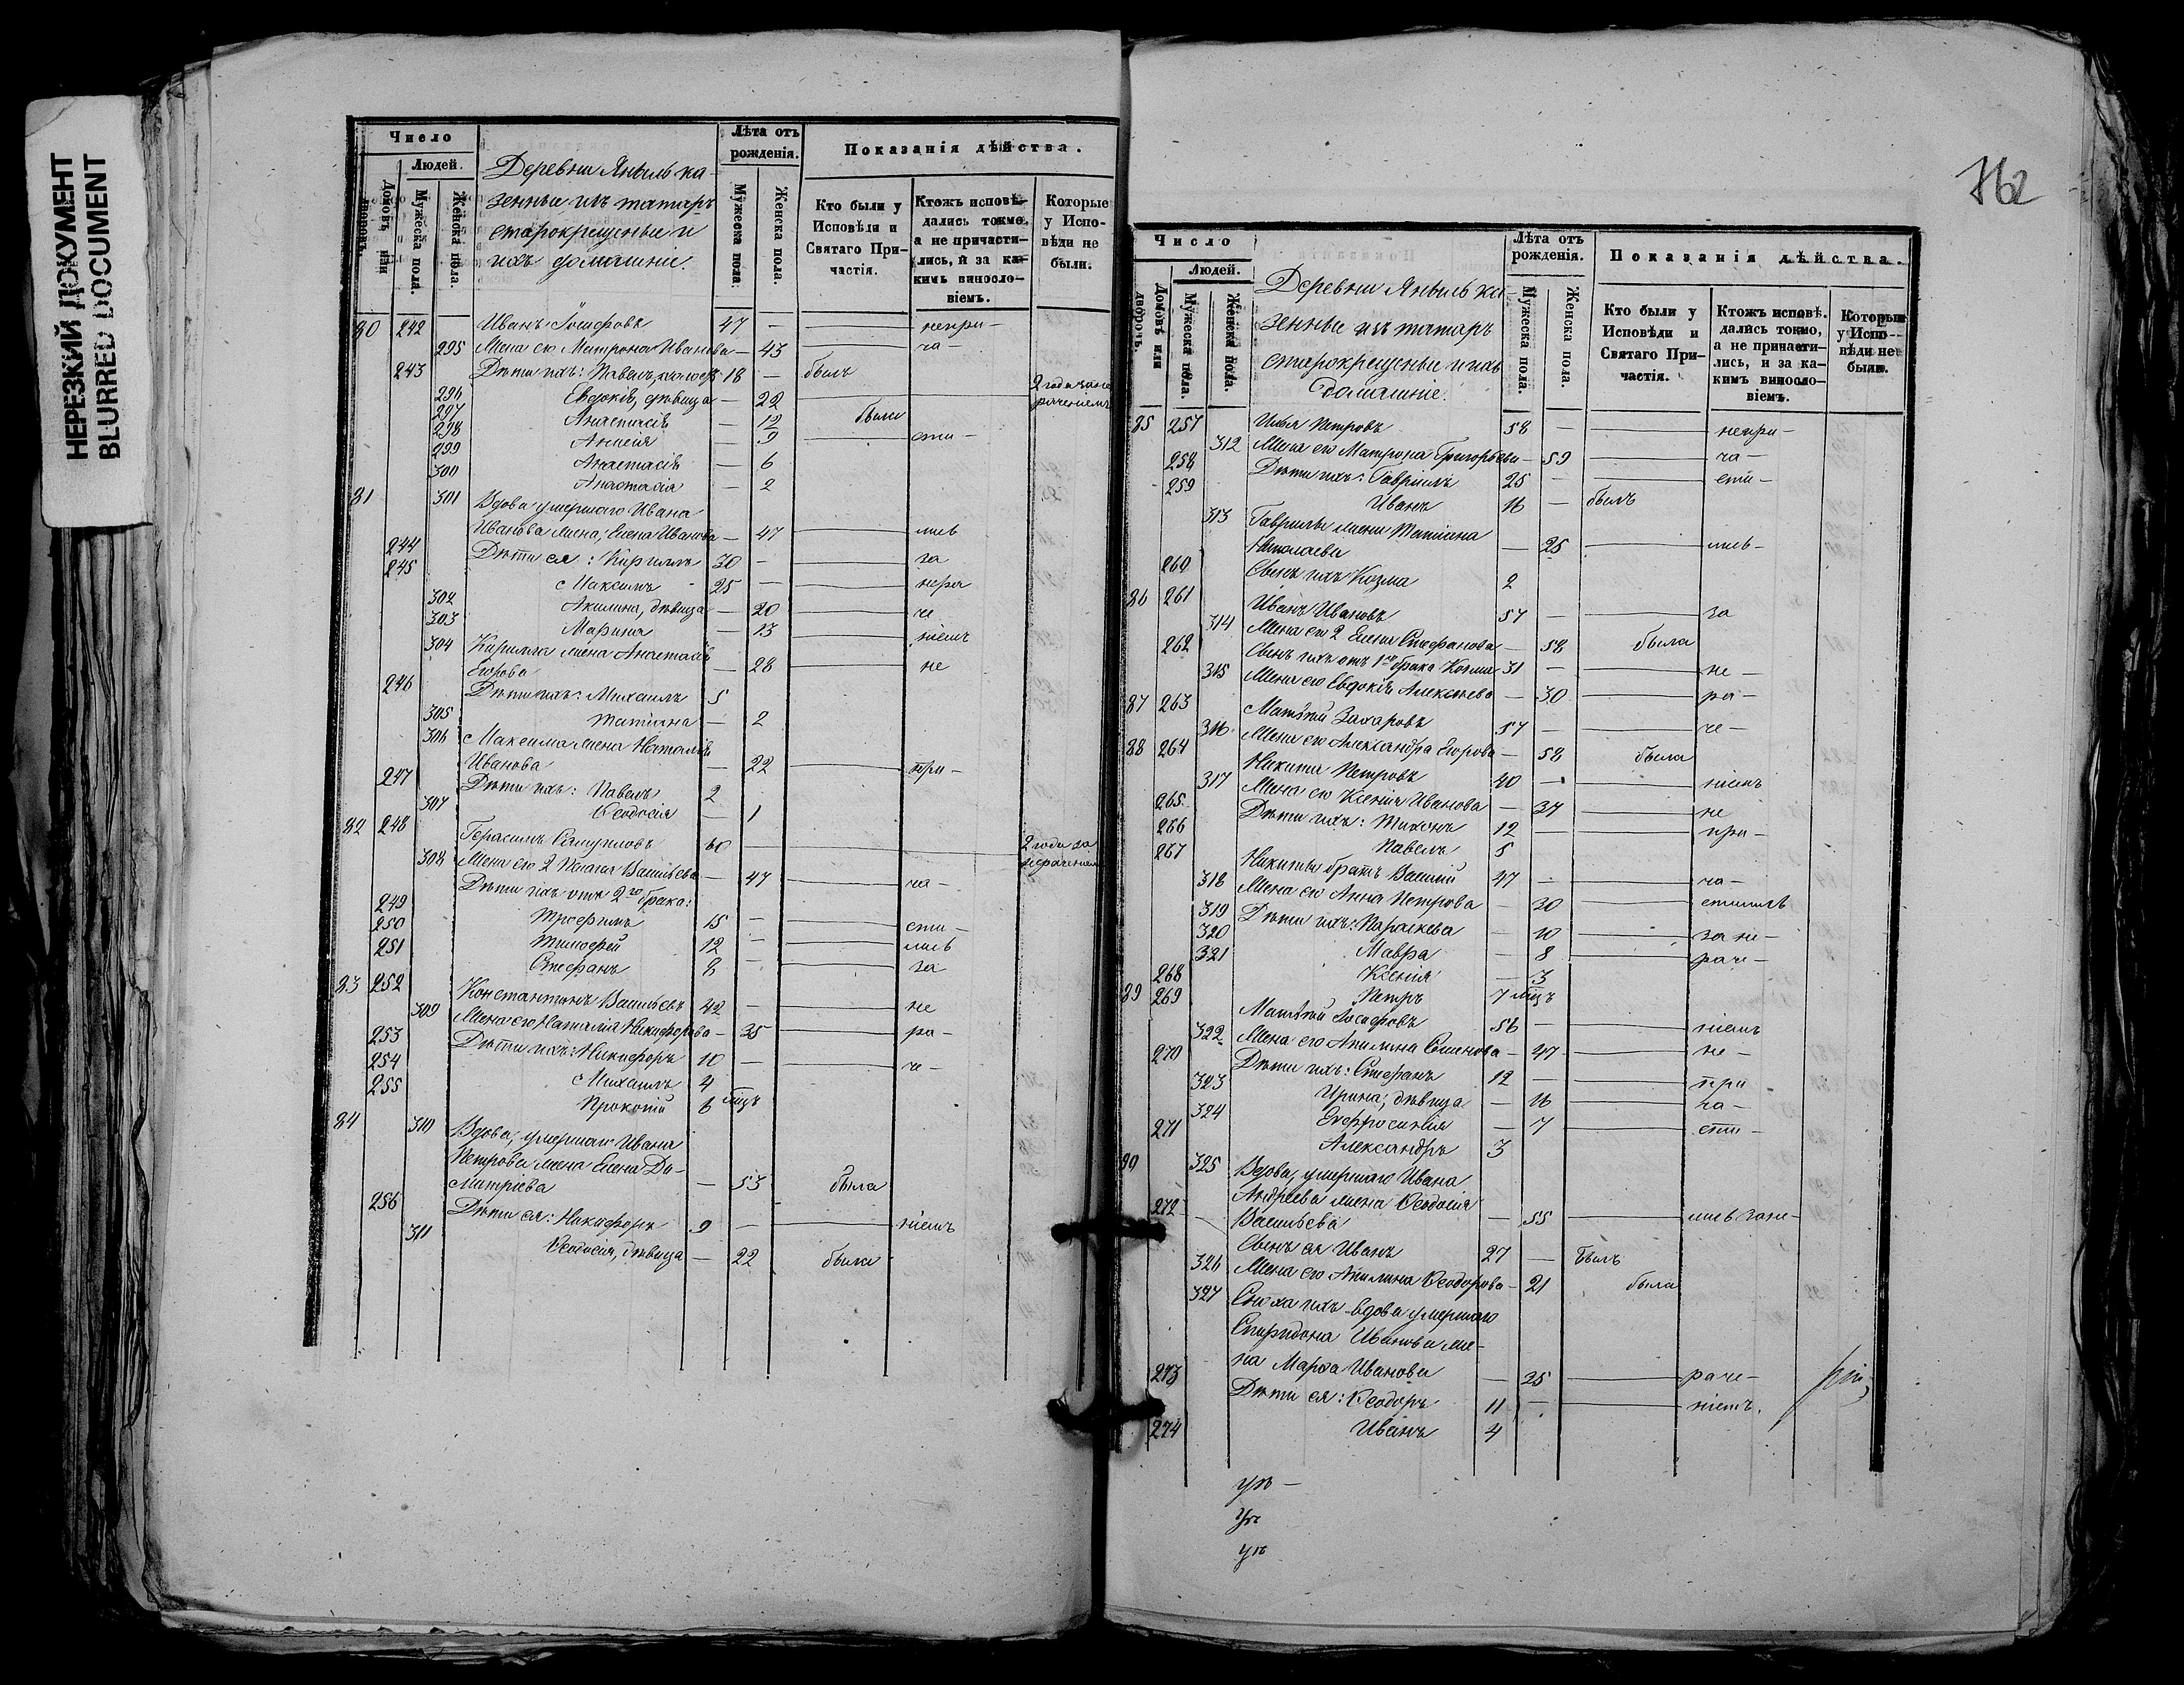 НЕРЕЗКИЙ ДОКУМЕНТ
BLURRED DOCUMENT
Число
Людей.
Домовъ или дворовъ.
Мужеска пола.
Женска пола.
Деревни Яныль ка-
зенные изъ татаръ
старокрещеные и
ихъ домашніе.
Лѣта отъ рожденія.
Мужеска пола.
Женска пола.
Показанія дѣйства.
Кто были у Исповѣди и Святаго При-частія.
Ктожъ исповѣ-дались токмо, а не причасти-лись, и за ка-кимъ виносло-віемъ.
Которые у Испо-вѣди не были.
80 242 Иванъ Іосифовъ 47 — непри-
295 Жена его Матрона Иванова — 43 ча-
243 Дѣти ихъ: Павелъ, холостъ 18 — былъ
296 Евдокія, дѣвица — 22 2 года за не
297 Анастасія — 12 была рачениемъ
298 — 9 сти-
299 Анастасія — 6
300 Анастасія — 2
81 301 Вдова умершаго Ивана
Иванова жена, Елена Иванова — 47 лись
244 Дѣти ея: Кириллъ 30 — за
245 Максимъ 25 — нера
302 Акилина, дѣвица — 20 че
303 Марина — 13 ніемъ
304 Кирилла жена Анастасія
Егорова — 28 не
246 Дѣти ихъ: Михаилъ 5
305 Татіана — 2
306 Максима жена Наталія
Иванова — 22 при-
247 Дѣти ихъ: Павелъ 2
307 Ѳеодосія — 1
82 248 Герасимъ 60 2 года за
308 Жена его 2 Васильева — 47 ча- нерачениемъ
Дѣти ихъ отъ 2го брака:
249 Трофимъ 15 — сти-
250 Тимофей 12 — лись
251 Стефанъ 8 — за
83 252 Константинъ Васильевъ 42 — не
309 Жена его Наталія Никифорова — 35 ра-
253 Дѣти ихъ: Никифоръ 10 — че-
254 Михаилъ 4
255 Прокопій 6 мцъ
84 310 Вдова, умершаго Ивана
Петрова жена Елена Ди-
митріева — 53 была
256 Дѣти ея: Никифоръ 9 — ніемъ
311 Ѳеодосія, дѣвица — 22 была
762
Число
Людей.
Домовъ или дворовъ.
Мужеска пола.
Женска пола.
Деревни Яныль ка-
зенные изъ татаръ
старокрещеные и ихъ
домашніе.
Лѣта отъ рожденія.
Мужеска пола.
Женска пола.
Показанія дѣйства.
Кто были у Исповѣди и Святаго При-частія.
Ктожъ исповѣ-дались токмо, а не причасти-лись, и за ка-кимъ виносло-віемъ.
Которые у Испо-вѣди не были.
85 257 Илья Петровъ 58 — непри-
312 Жена его Матрона Григорьева — 59 ча-
258 Дѣти ихъ: Гавріилъ 25 — сти-
259 Иванъ 16 — былъ
313 Гаврилы жена Татіана
Николаева — 25 лись-
260 Сынъ ихъ Козма 2
86 261 Иванъ Ивановъ 57 — за
314 Жена его 2 Елена Стефанова — 58 была
262 Сынъ ихъ отъ 1го брака Козма 31 — не-
315 Жена его Евдокія Алексѣева — 30 ра-
87 263 Матѳей Захаровъ 57 — че-
316 Жена его Александра Егорова — 58 была
88 264 Никита Петровъ 40 — ніемъ
317 Жена его Ксенія Иванова — 37 не
265 Дѣти ихъ: Тихонъ 12 — при-
266 Павелъ 5
267 Никиты братъ Василій 47 — ча-
318 Жена его Анна Петрова — 30 стились
319 Дѣти ихъ: Параскева — 10 за не-
320 Мавра — 8 раче-
321 Ксенія — 3
268 Петръ 7 мцъ
89 269 Матѳей Іосифовъ 56 — ніемъ
322 Жена его Акилина Семенова — 47 не-
270 Дѣти ихъ: Стефанъ 12 — при
323 Ирина, дѣвица — 16 ча-
324 Евфросинія — 7 сти-
271 Александръ 3
90 325 Вдова, умершаго Ивана
Андреева жена Ѳеодосія
Васильева — 55 лись за не-
272 Сынъ ея Иванъ 27 — былъ
326 Жена его Акилина Ѳеодорова — 21 была
327 Сноха ихъ вдова умершаго
Спиридона Иванова же-
на Марѳа Иванова — 25 раче-
273 Дѣти ея: Ѳеодоръ 11 — ніемъ.
274 Иванъ 4